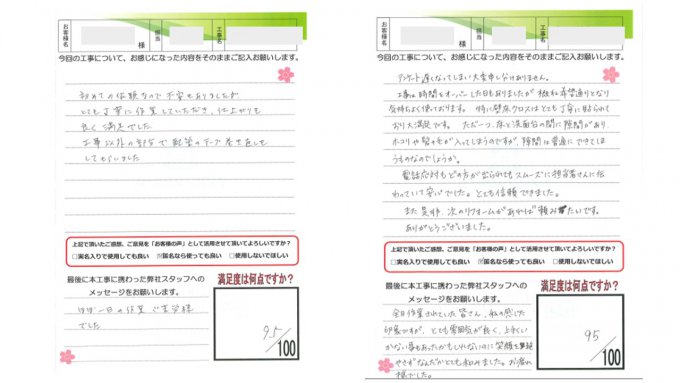 お客様名
様
担当
工事名
今回の工事について、お感じになった内容をそのままご記入お願いします。
初めての依頼なので不安もありましたが
とても丁寧に作業していただき、仕上がりも
良く満足でした。
工事以外の部分で配管のテープ巻き直しも
してもらいました
上記で頂いたご感想、ご意見を「お客様の声」として活用させて頂いてよろしいですか?
□実名入りで使用しても良い ☑匿名なら使っても良い □使用しないでほしい
最後に本工事に携わった弊社スタッフへの
メッセージをお願いします。
ほぼ一日の作業ご苦労様
でした
満足度は何点ですか?
95/100
お客様名
様
担当
工事名
今回の工事について、お感じになった内容をそのままご記入お願いします。
アンケート遅くなってしまい大変申し分けありません。
工事は時間をオーバーした日もありましたが 概ね希望通りとなり
気持ちよく使えております。 特に壁床クロスはとても丁寧に貼られて
おり大満足です。 ただ一つ、床と洗面台の間に隙間があり、
ホコリや髪の毛が入ってしまうのですが、隙間は普通にできてしま
うものなのでしょうか。
電話応対もどの方が出られてもスムーズに担当者さんに伝
わっていて安心でした。とても信頼できました。
また是非、次のリフォームがあれば頼みたいです。
ありがとうございました。
上記で頂いたご感想、ご意見を「お客様の声」として活用させて頂いてよろしいですか?
□実名入りで使用しても良い ☑匿名なら使っても良い □使用しないでほしい
最後に本工事に携わった弊社スタッフへの
メッセージをお願いします。
今日作業されていた皆さん、私の感じた
印象ですが、とても雰囲気が良く、上手くい
かない事もあったかもしれないのに笑顔で
やさがなんだかとても和みました。お疲れ
様でした。
満足度は何点ですか?
95/100